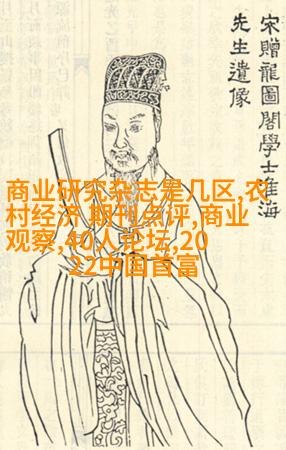 宋贈龍圖閣學士淮海
先生遺像
商业研究杂志是几区,农
村经济 期刊点评,商业
观察,40人论坛,20
22中国首富